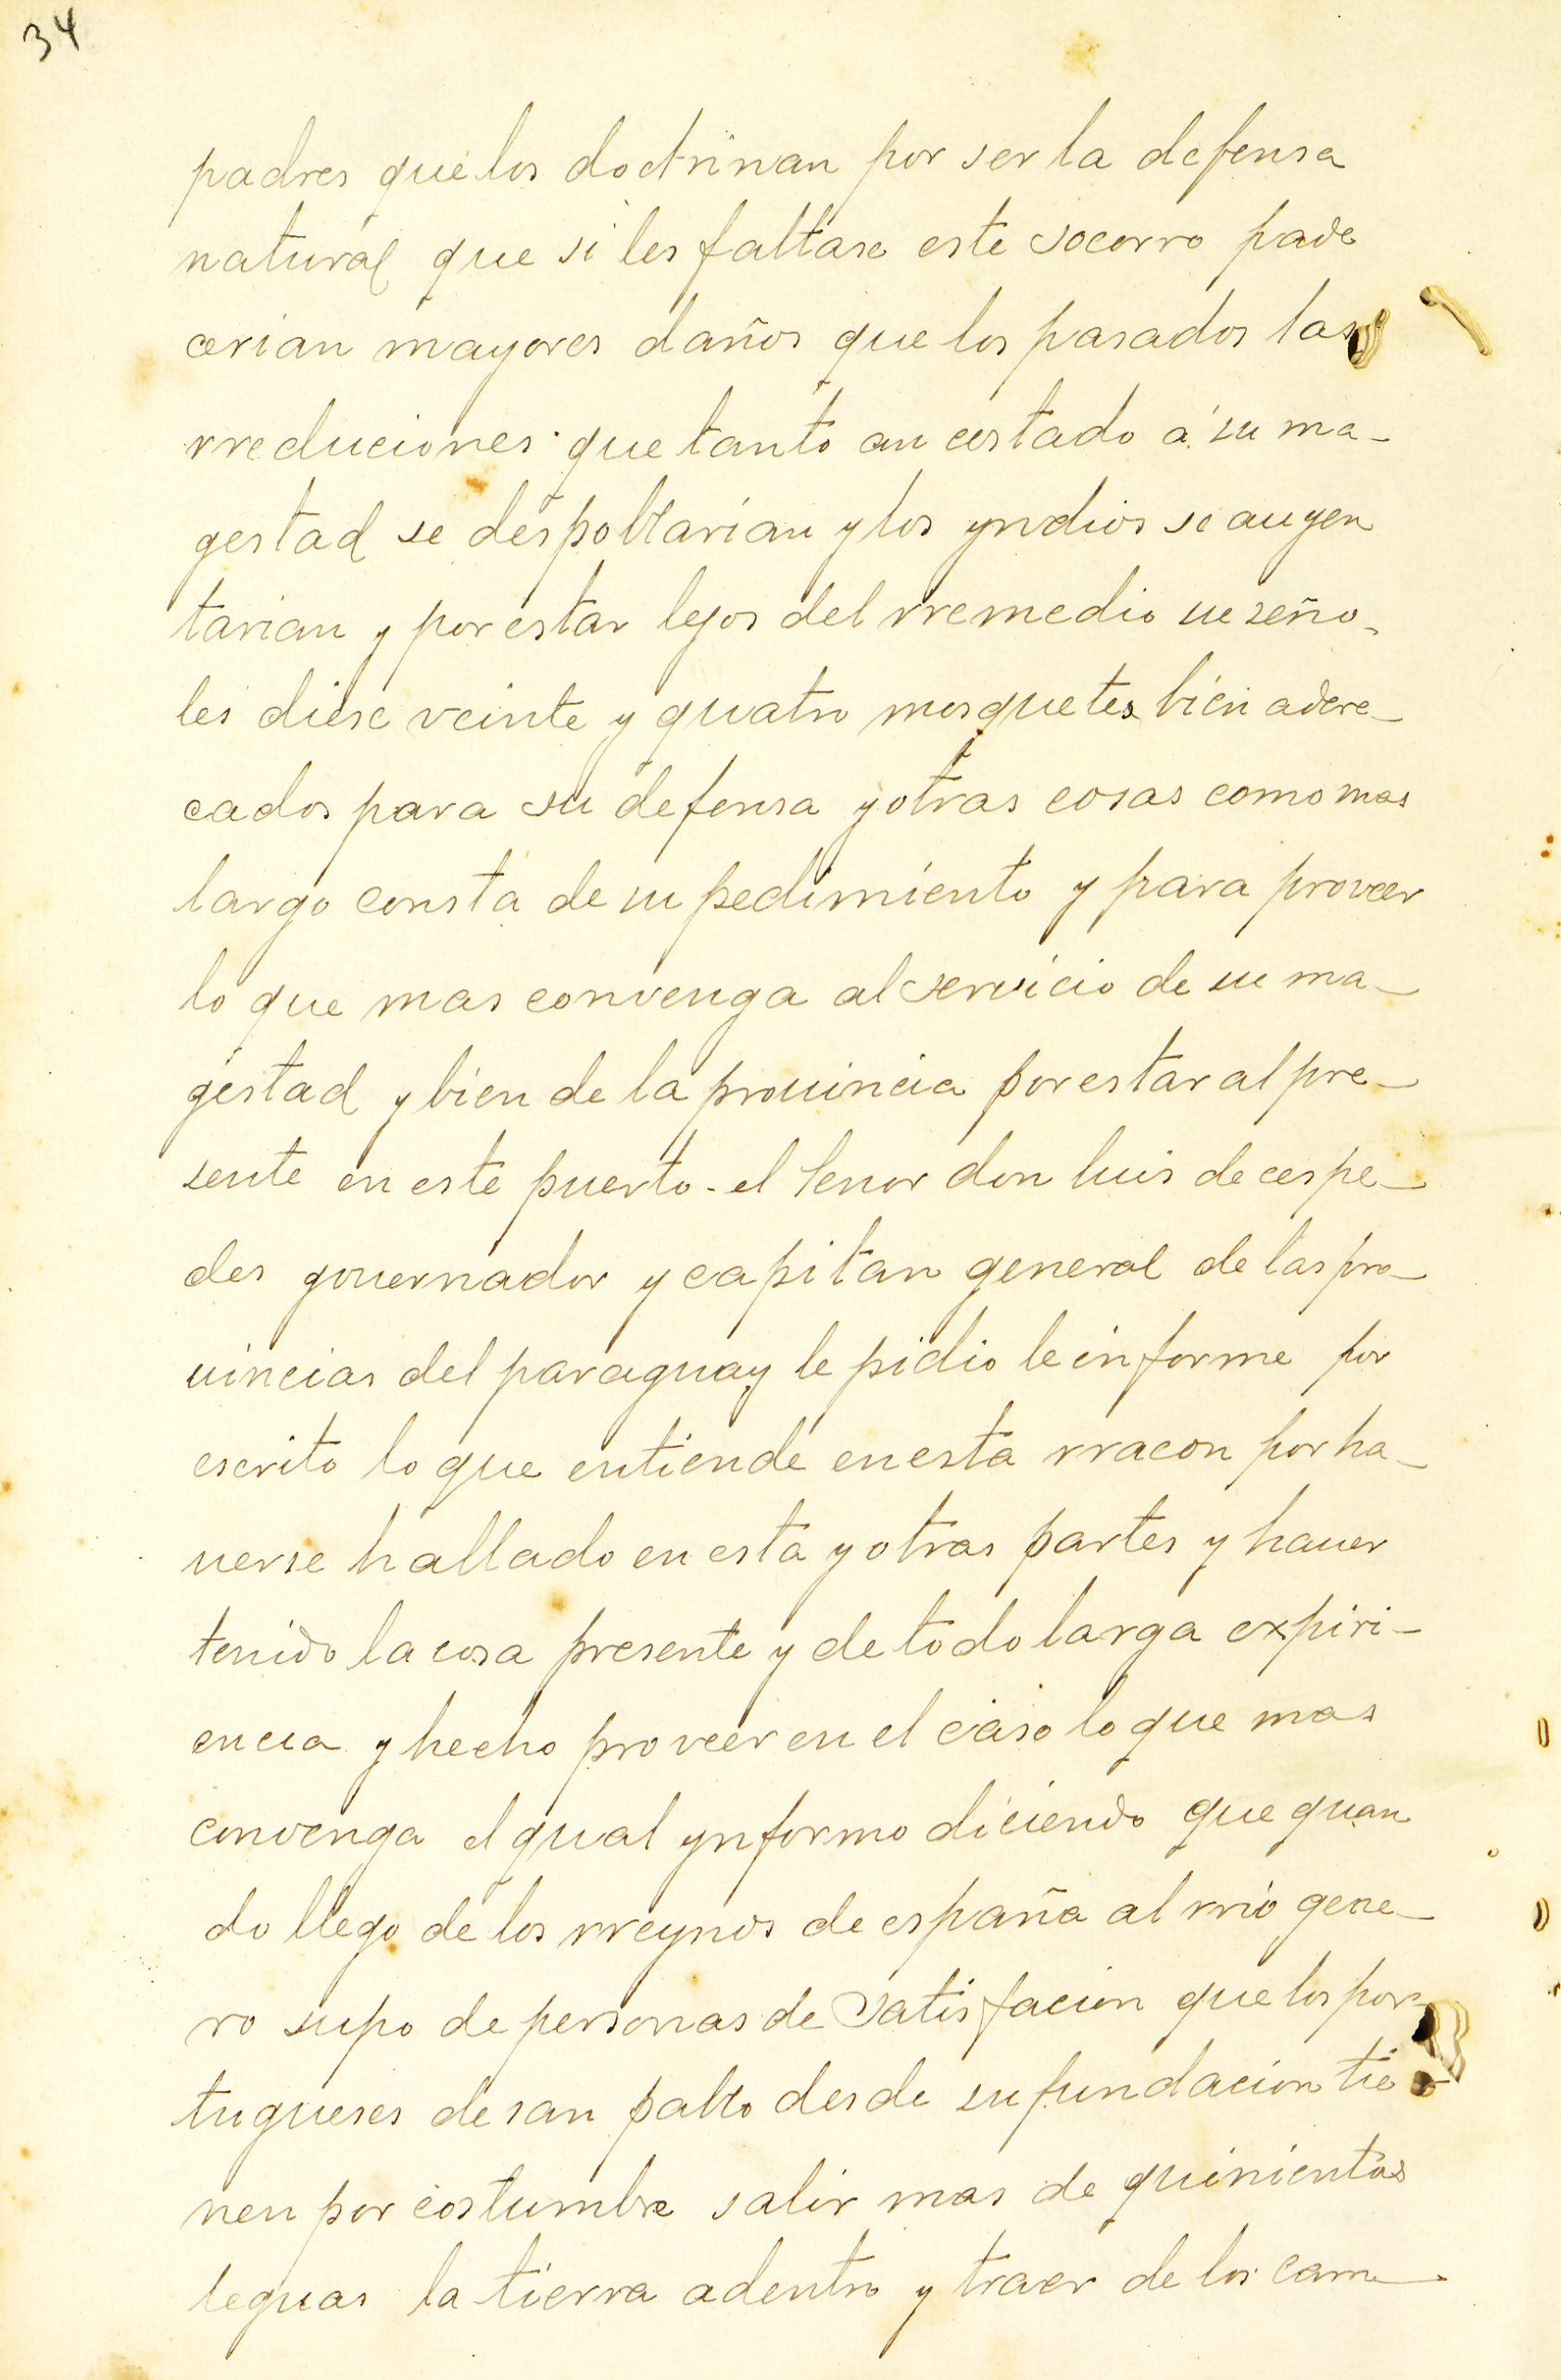 34
padres que los doctrinan por ser la defensa
natural que si les faltase este socorro pade
cerian mayores daños que los pasados las
rreduciones que tanto an costado a su ma-
gestad se despoblarian y los yndios se auyen
tarian y por estar lejos del rremedio su seño-
les diese veinte y quatro mosquetes bien adere-
cados para su defensa y otras cosas como mas
largo consta de su pedimiento y para proveer
lo que mas convenga al servicio de su ma-
gestad y bien de la prouincia por estar al pre-
sente en este puerto - el senor don luis de cespe-
des gouernador y capitan general de las pro-
uincias del paraguay le pidio le informe por
escrito lo que entiende en esta rracon por ha-
uerse hallado en esta y otras partes y hauer
tenido la cosa presente y de todo larga expiri-
encia y hecho proveer en el caso lo que mas
convenga el qual ynformo diciendo que quan
do llego de los rreynos de españa al rrio gene-
ro supo de personas de satisfacion que los por-
tugueses de san pablo desde su fundacion tie-
nen por costumbre salir mas de quinientas
leguas la tierra adentro y traer de los cam-